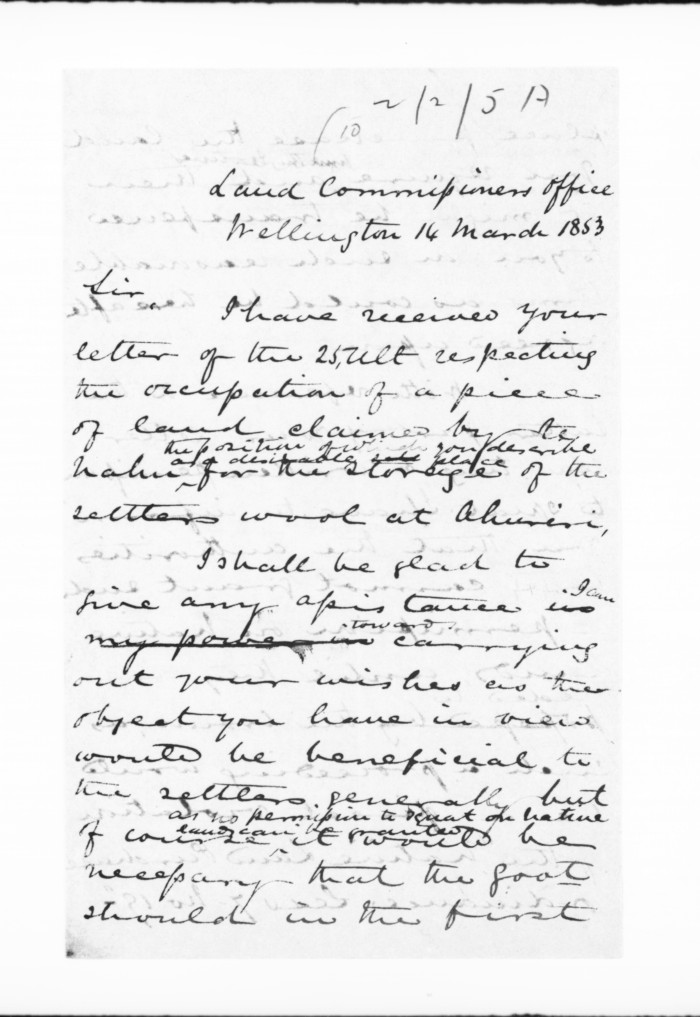 2/2/5 A
10
Land Commissioners Office
Wellington 14 March 1853
Sir,
I have received your
letter of the 25, Ult respecting
the occupation of a piece
of land claimed by te
the position of which you describe
as a desirable place
hahu for the storage of the
settlers wool at Ahuriri,
I shall be glad to
give any assistance in I am
my power in toward carrying
out your wishes as the
object you have in view
would be beneficial to
the settlers generally but
as no permission to squat on native
land can be granted
of course it would be
necessary that the Govt
should in the first